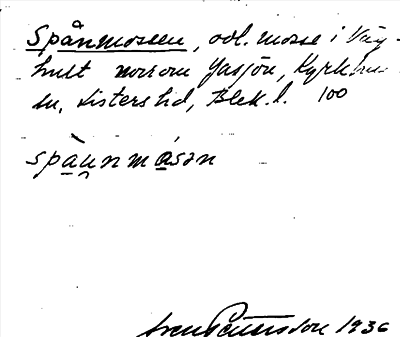 Spånmossen, odl. mosse i Väg-
hult norrom Gasjön, Kyrkhu-
lt, Listers hd, Blek. l. 100
spànmósən
Sven Pettersson 1936